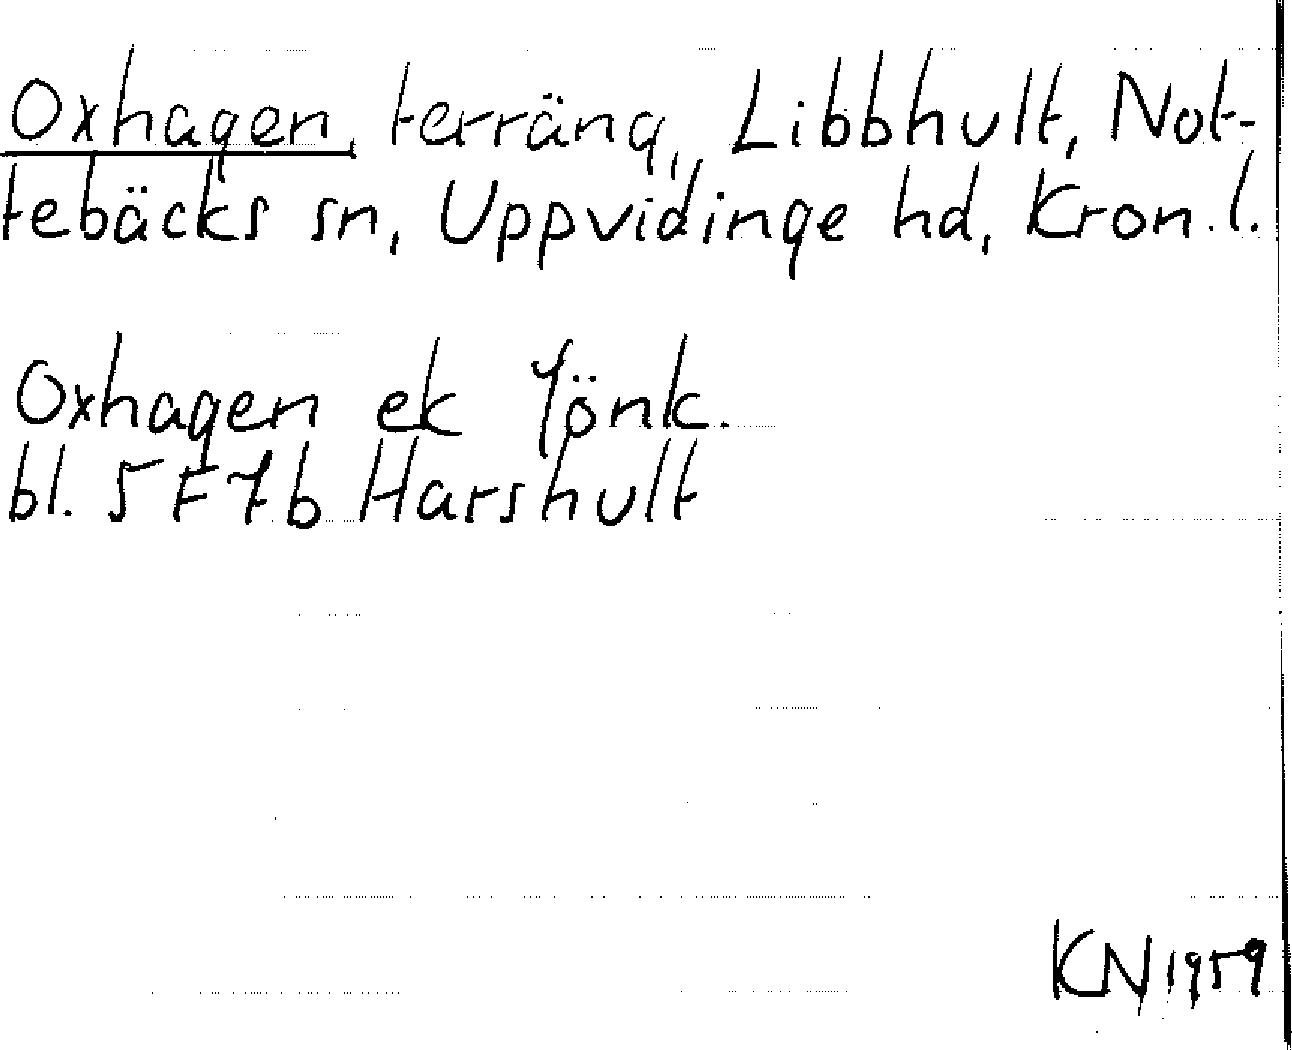 Oxhagen, terräng, Libbhult, Not-
tebäcks sn, Uppvidinge hd, Kron. l.
Oxhagen ek Jönk.
bl. 5 F 7 b Harshult
KN 1959